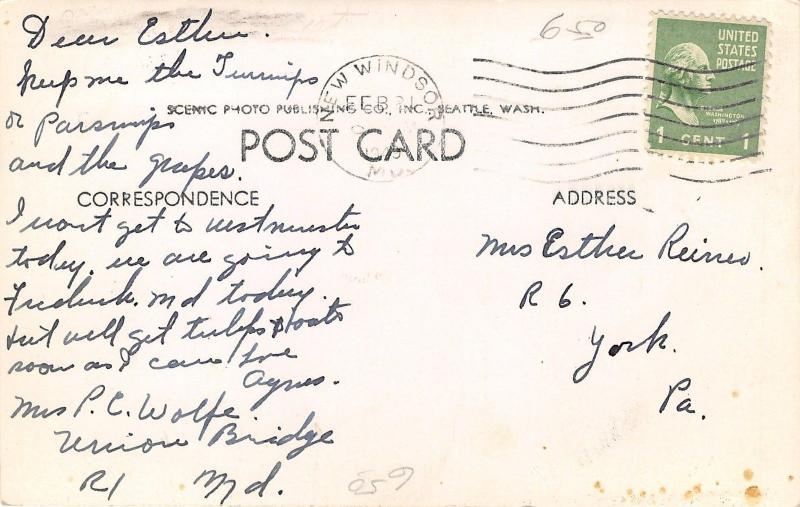 Dear Esther.
keep me the Turnips
or Parsnips
and the grapes.
I wont get to Westminster
today. we are going to
Frederick. Md today.
but will get tulips & oats
soon as I can Love
Agnes.
Mrs P. C. Wolfe
Union Bridge
R1 Md.
650
NEW WINDSOR
FEB
MD.
SCENIC PHOTO PUBLISHING CO., INC., SEATTLE, WASH.
POST CARD
CORRESPONDENCE
ADDRESS
UNITED
STATES
POSTAGE
WASHINGTON
1 CENT 1
Mrs Esther
R 6.
York.
Pa.
059